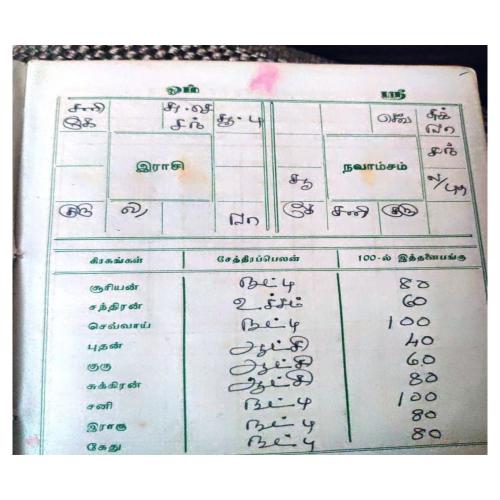 ஓம் ஸ்ரீ
சனி
கே
சு.செ
சந்
சூட்பு
செவ்
சுக்
ரா
இராசி
நவாம்சம்
சந்
சூ
ல/புத
குரு
ல/
ரா
கே
சனி
குரு
கிரகங்கள் சேத்திரப்பெலன் 100-ல் இத்தனைபங்கு
சூரியன் நட்பு 80
சந்திரன் உச்சம் 60
செவ்வாய் நட்பு 100
புதன் ஆட்சி 40
குரு ஆட்சி 60
சுக்கிரன் ஆட்சி 80
சனி நட்பு 100
இராகு நட்பு 80
கேது நட்பு 80